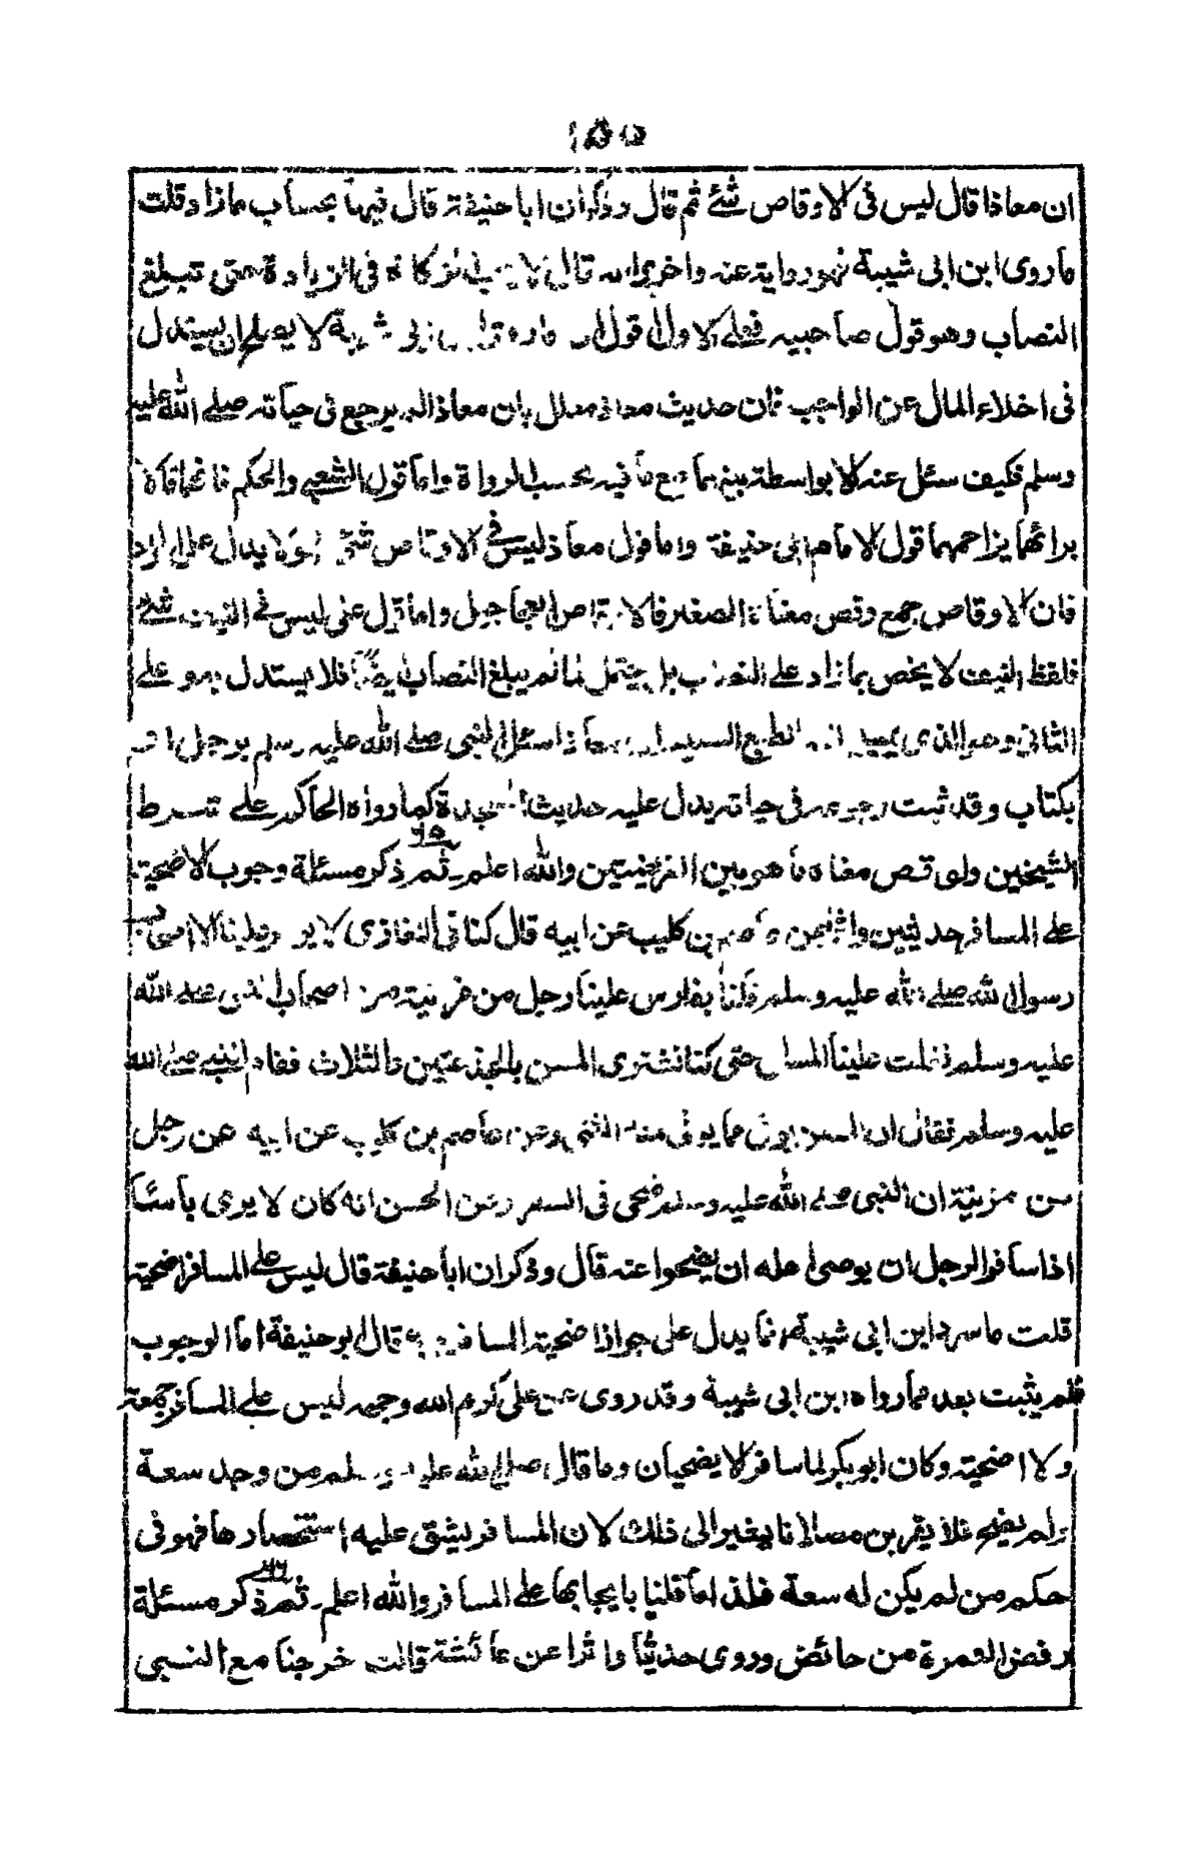 ان معاذا قال ليس فى الاوقاص شئ ثم قال وذكر ان ابا حنيفة قال فيها بحساب ما زاد قلت
ما روى ابن ابى شيبة فهو رواية عنه واخرى انه قال لا يجب الزكاة فى الزيادة حتى تبلغ
النصاب وهو قول صاحبيه فعلى الاول قول لا يصلح ان يستدل
فى اخلاء المال عن الواجب فان حديث معاذ معلل بان معاذا لم يرجع فى حياته صلى الله عليه
وسلم فكيف سئل عنه الا بواسطة بينهما مع ما فيه بحسب الرواة واما قول الشعبى والحكم فانما قالاه
برائهما يزاحمهما قول الامام ابى حنيفة واما قول معاذ ليس فى الاوقاص شئ لا يدل على المراد
فان الاوقاص جمع وقص معناه الصغير فالاوقاص العجاجيل واما قول على ليس فى النيف شئ
فلفظ النيف لا يخص بما زاد على النصاب بل يحتمل ما لم يبلغ النصاب ايضا فلا يستدل به وعلى
الثانى وهو الذى يميل اليه الطبع السليم ان معاذا سئل النبى صلى الله عليه وسلم برجل او
بكتاب وقد ثبت رجوعه فى حياته يدل عليه حديث السجدة كما رواه الحاكم على شرط
الشيخين ولوقص معناه ما هو بين الفريضتين والله اعلم۔ ثم ذكر مسئلة وجوب الاضحية
على المسافر حديثين واثرين عن عاصم بن كليب عن ابيه قال كنا فى المغازى لا يؤمر علينا الا اصحاب
رسول الله صلى الله عليه وسلم فكنا بفارس علينا رجل من مزينة من اصحاب النبى صلى الله
عليه وسلم فغلت علينا المسان حتى كنا نشترى المسن بالجذعتين والثلاث فقام النبى صلى الله
عليه وسلم فقال ان المسن يوفى مما يوفى منه الثنى وعن عاصم بن كليب عن ابيه عن رجل
من مزينة ان النبى صلى الله عليه وسلم ضحى فى السفر وعن الحسن انه كان لا يرى باسا
اذا سافر الرجل ان يوصى اهله ان يضحوا عنه قال وذكر ان ابا حنيفة قال ليس على المسافر اضحية
قلت ما سرد ابن ابى شيبة انما يدل على جواز اضحية المسافر وبه قال ابو حنيفة اما الوجوب
فلم يثبت بعد مما رواه ابن ابى شيبة وقد روى عن على كرم الله وجهه ليس على المسافر جمعة
ولا اضحية وكان ابو بكر لما سافر لا يضحيان وما قال صلى الله عليه وسلم من وجد سعة
ولم يضح فلا يقربن مصلانا يشير الى ذلك لان المسافر ليشق عليه استحضارها فهو فى
حكم من لم يكن له سعة فلذا ما قلنا بايجابها على المسافر والله اعلم۔ ثم ذكر مسئلة
رفض العمرة من حائض وروى حديثا واثرا عن عائشة قالت خرجنا مع النبى